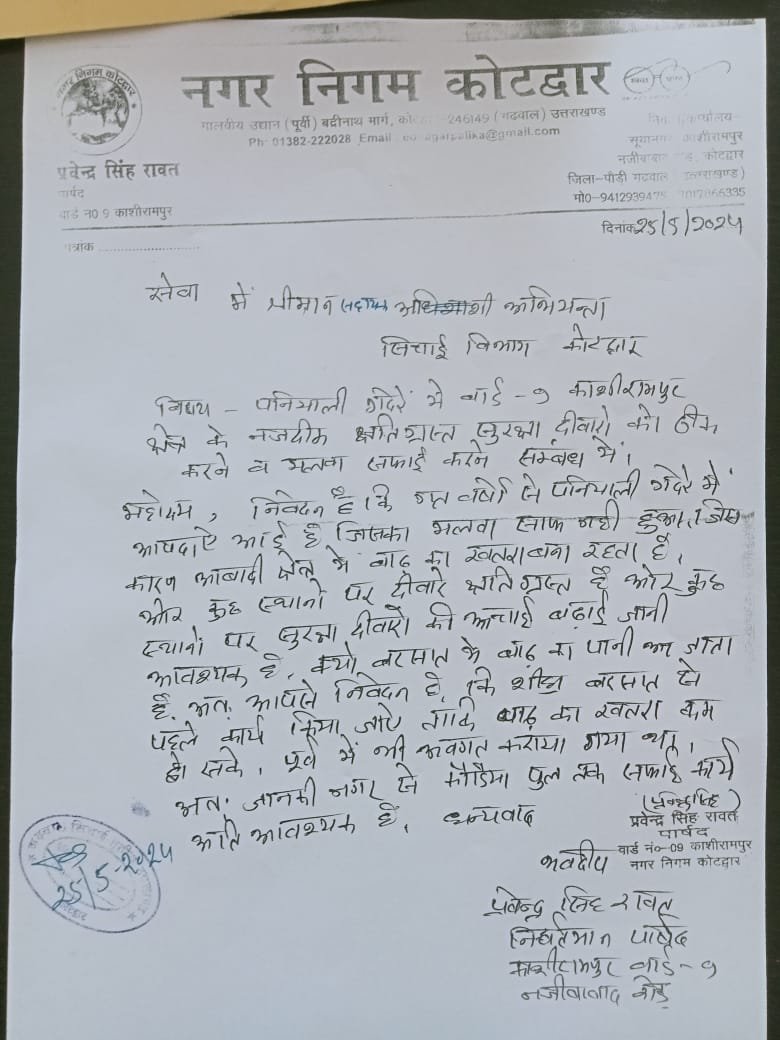 नगर निगम कोटद्वार
नगर निगम कोटद्वार
मालवीय उद्यान (पूर्वी) बद्रीनाथ मार्ग, -246149 (गढवाल) उत्तराखण्ड
Ph: 01382-222028 Email
प्रवेन्द्र सिंह रावत
पार्षद
वार्ड न0 9 काशीरामपुर
काशीरामपुर
कोटद्वार
जिला-पौड़ी गढवाल
मो0-9412939475
दिनांक 25/5/2024
पत्रांक
सेवा में श्रीमान सहायक अभियन्ता
सिंचाई विभाग कोटद्वार
विषय - पनियाली गदेरे में वार्ड -9 काशीरामपुर
क्षेत्र के नजदीक क्षतिग्रस्त सुरक्षा दीवारो को ठीक
करने व मलवा सफाई करने सम्बंध में।
महोदय, निवेदन है कि गत वर्षो से पनियाली गदेरे में
आपदाऐ आई है जिसका मलवा साफ नही हुआ, जिस
कारण आबादी क्षेत्र में बाढ़ का खतरा बना रहता है,
और कुछ स्थानो पर दीवारे क्षतिग्रस्त है और कुछ
स्थानों पर सुरक्षा दीवारो की ऊचाई बढ़ाई जानी
आवश्यक है, क्यो बरसात में बाढ़ का पानी आ जाता
है. अतः आपसे निवेदन है, कि शीघ्र बरसात से
पहले कार्य किया जाऐ ताकि बाढ़ का खतरा कम
हो सके, पूर्व में भी अवगत कराया गया था,
अतः जानकी नगर से कौडिया पुल तक सफाई कार्य
अति आवश्यक है, धन्यवाद
प्रवेन्द्र सिंह रावत
पार्षद
वार्ड नं०-09 काशीरामपुर
नगर निगम कोटद्वार
भवदीय
प्रवेन्द्र सिंह रावत
निवर्तमान पार्षद
काशीरामपुर वार्ड -9
नजीबाबाद रोड़
25/5-2024